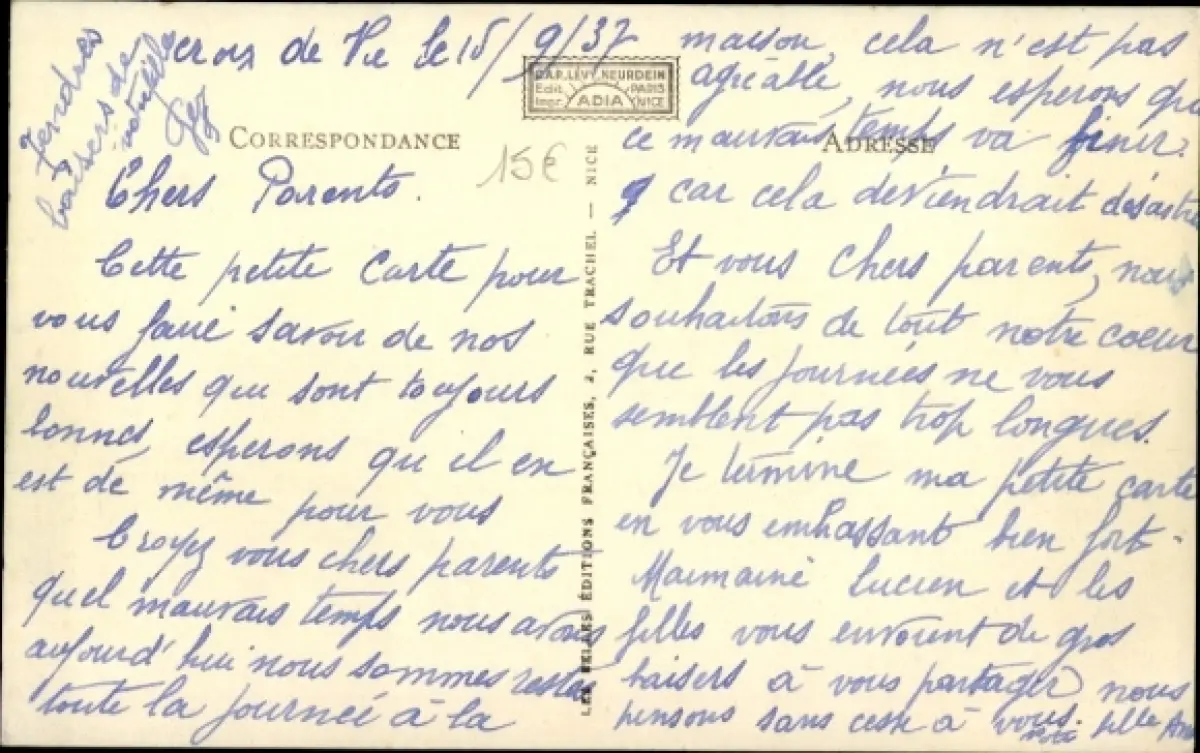 croix de Vie le 15/9/37
Tendres
baisers de
votre fille
CAP. LÉVY. NEURDEIN
Edit. PARIS
Impr. ADIA NICE
CORRESPONDANCE
15€
Chers Parents.
Cette petite carte pour
vous faire savoir de nos
nouvelles qui sont toujours
bonnes, esperons qu il en
est de même pour vous
Croyez vous chers parents
quel mauvais temps nous avons
aujourd'hui nous sommes resté
toute la journée à la
LES BELLES ÉDITIONS FRANÇAISES, 2, RUE TRACHEL — NICE
ADRESSE
maison, cela n'est pas
agréable, nous esperons que
ce mauvais temps va finir.
car cela deviendrait désastre
Et vous chers parents, nous
souhaitons de tout notre coeur
que les journées ne vous
semblent pas trop longues.
Je termine ma petite carte
en vous embassant bien fort.
Lucien et les
filles vous envoient de gros
baisers à vous partager nous
pensons sans cesse à vous.
fille